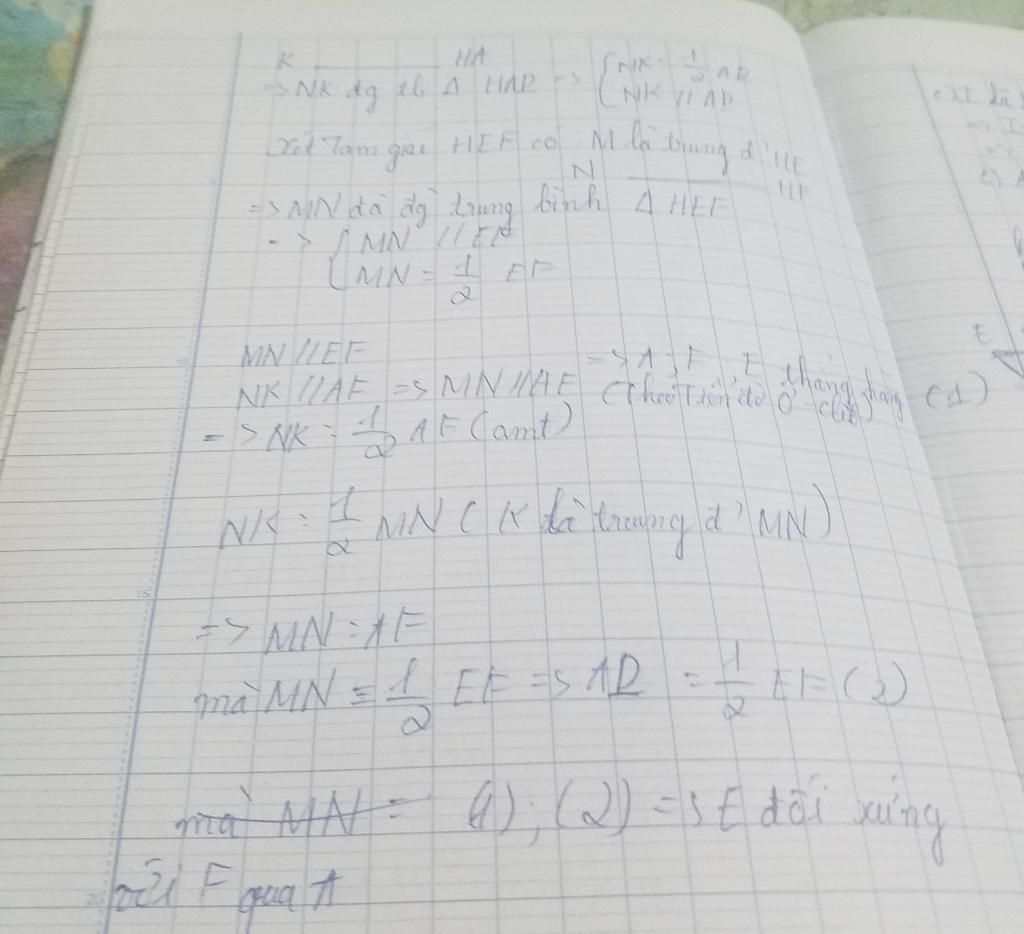 K ________ HA
=> NK đg tb Δ HAD => { NK = 1/2 AD
NK // AD
Xét Tam giác HEF có M là trung đ' HE
N ________ HF
=> MN là đg trung bình Δ HEF
=> { MN // EF
MN = 1/2 EF
MN // EF
NK // AF => MN // AF => A; F; E thẳng hàng (1)
(Theo Tiên đề Ơ-clit)
=> NK = 1/2 AF (cmt)
NK = 1/2 MN ( K là trung đ' MN)
=> MN = AF
mà MN = 1/2 EF => AD = 1/2 EF (2)
mà MN = (1); (2) => E đối xứng
với F qua A
c) I là
=> I
=>
c) A
E
15
20